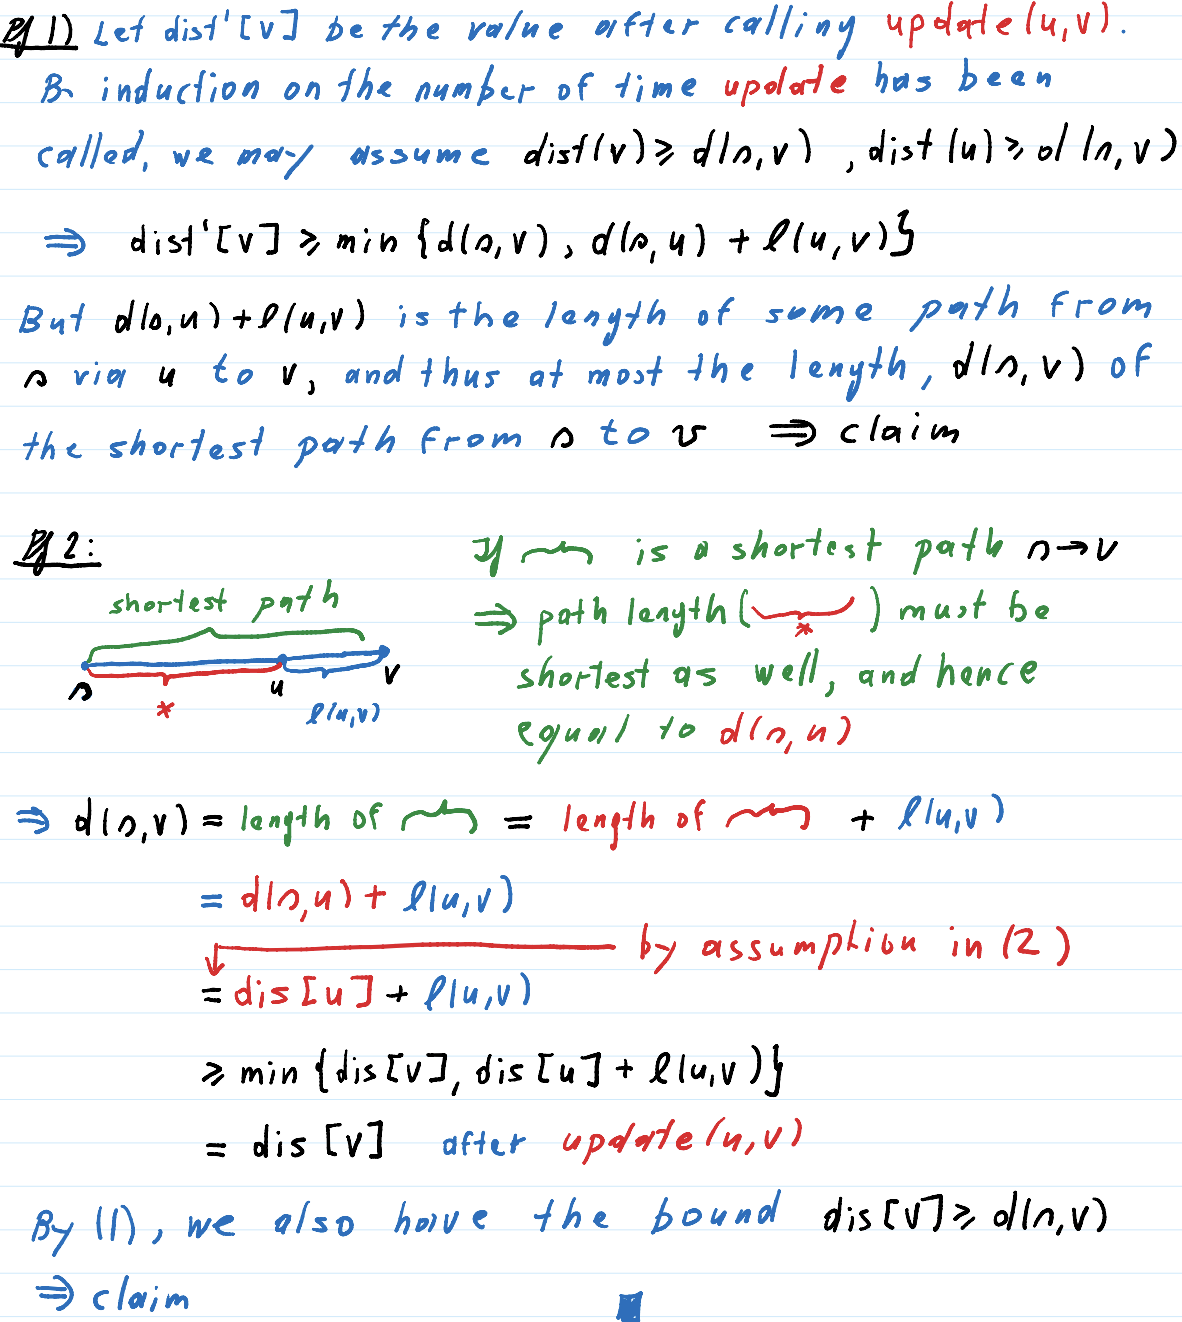 Pf 1) Let dist'[v] be the value after calling update(u,v).
By induction on the number of time update has been
called, we may assume dist(v) ≥ d(s,v) , dist(u) ≥ d(s,v)
⇒ dist'[v] ≥ min {d(s,v), d(s,u) + l(u,v)}
But d(s,u) + l(u,v) is the length of some path from
s via u to v, and thus at most the length, d(s,v) of
the shortest path from s to v ⇒ claim
Pf 2:
shortest path
s * u l(u,v) v
If ⏞ is a shortest path s→v
⇒ path length( ⏟ * ) must be
shortest as well, and hence
equal to d(s,u)
⇒ d(s,v) = length of ⏞ = length of ⏞ + l(u,v)
= d(s,u) + l(u,v)
by assumption in (2)
= dis[u] + l(u,v)
≥ min {dis[v], dis[u] + l(u,v)}
= dis[v] after update(u,v)
By (1), we also have the bound dis[v] ≥ d(s,v)
⇒ claim